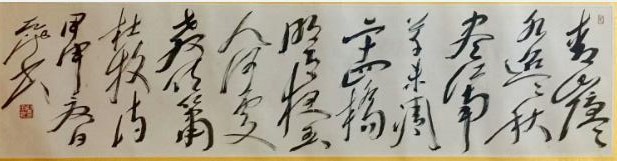 青山隱〻
水迢〻秋
盡江南
草未凋
二十四橋
明月夜玉
人何處
教吹簫
杜牧詩
甲申日